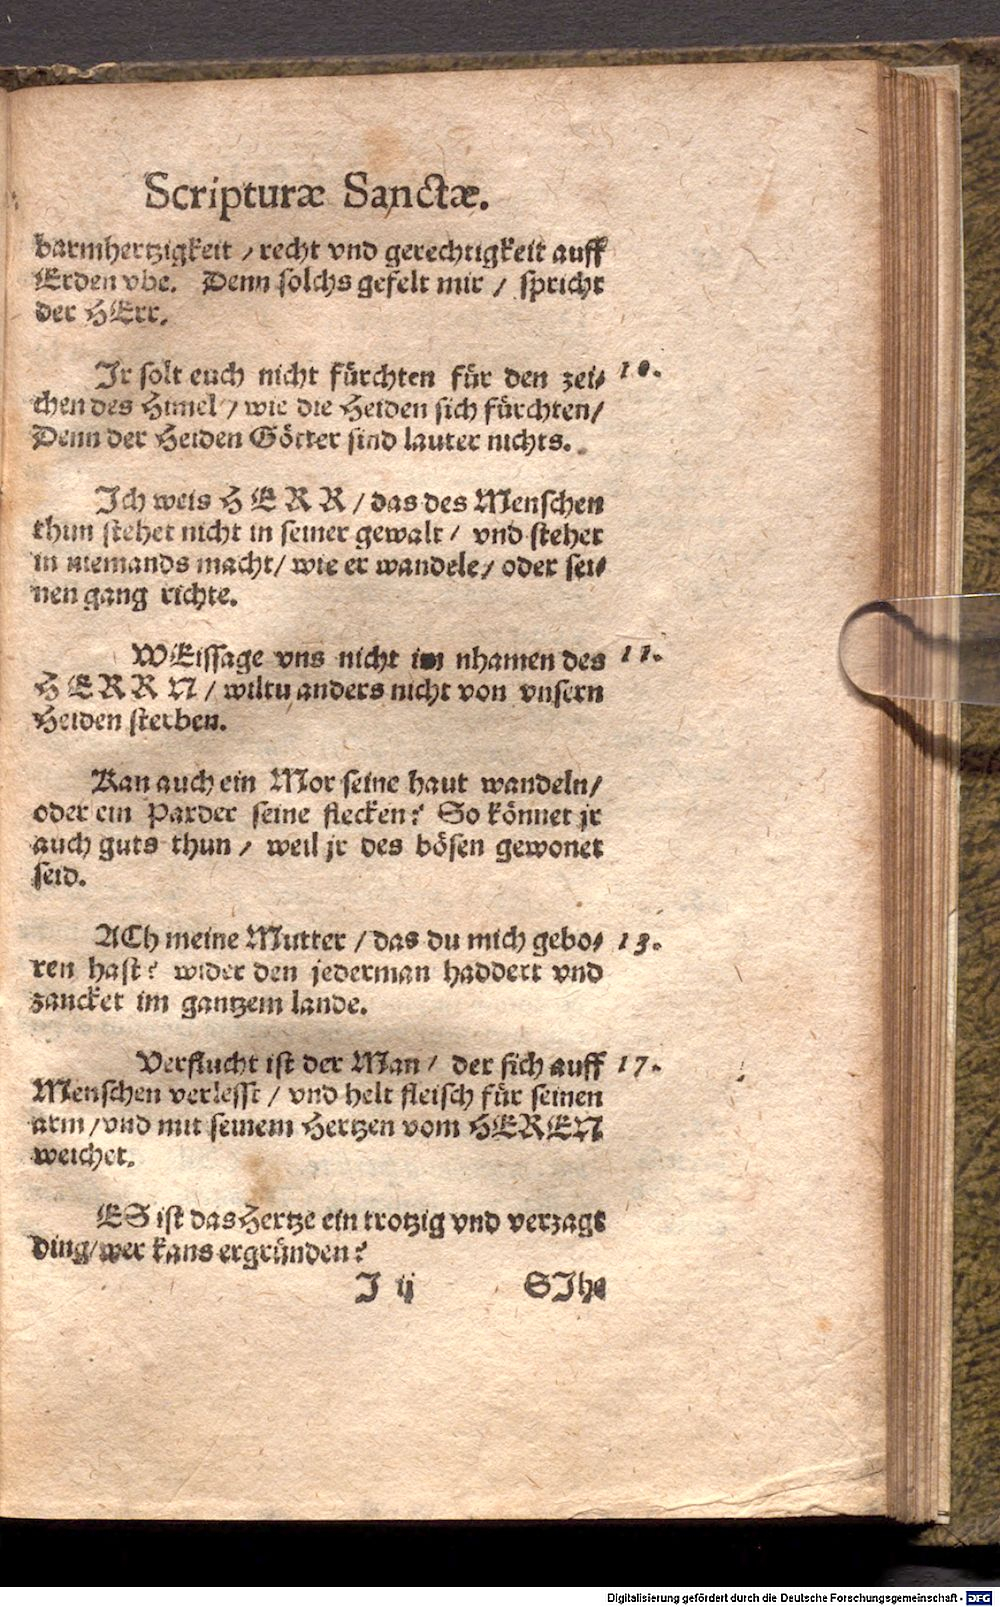 Scripturæ Sanctæ.
barmhertzigkeit / recht vnd gerechtigkeit auff
Erden vbe. Denn solchs gefelt mir / spricht
der HErr.
Jr solt euch nicht fürchten für den zei-
chen des Himel / wie die Heiden sich fürchten /
Denn der Heiden Götter sind lauter nichts.
10.
Ich weis HERR / das des Menschen
thun stehet nicht in seiner gewalt / vnd stehet
in niemands macht / wie er wandele / oder sei-
nen gang richte.
WEissage vns nicht im nhamen des
HERRN / wiltu anders nicht von vnsern
Heiden sterben.
11.
Kan auch ein Mor seine haut wandeln /
oder ein Parder seine flecken? So könnet jr
auch guts thun / weil jr des bösen gewonet
seid.
ACh meine Mutter / das du mich gebo-
ren hast? wider den jederman haddert vnd
zancket im gantzem lande.
13.
Verflucht ist der Man / der sich auff
Menschen verlesst / vnd helt fleisch für seinen
arm / vnd mit seinem Hertzen vom HEREN
weichet.
17.
ES ist das Hertze ein trotzig vnd verzagt
ding / wer kans ergründen?
J ij SJhe
Digitalisierung gefördert durch die Deutsche Forschungsgemeinschaft - DFG